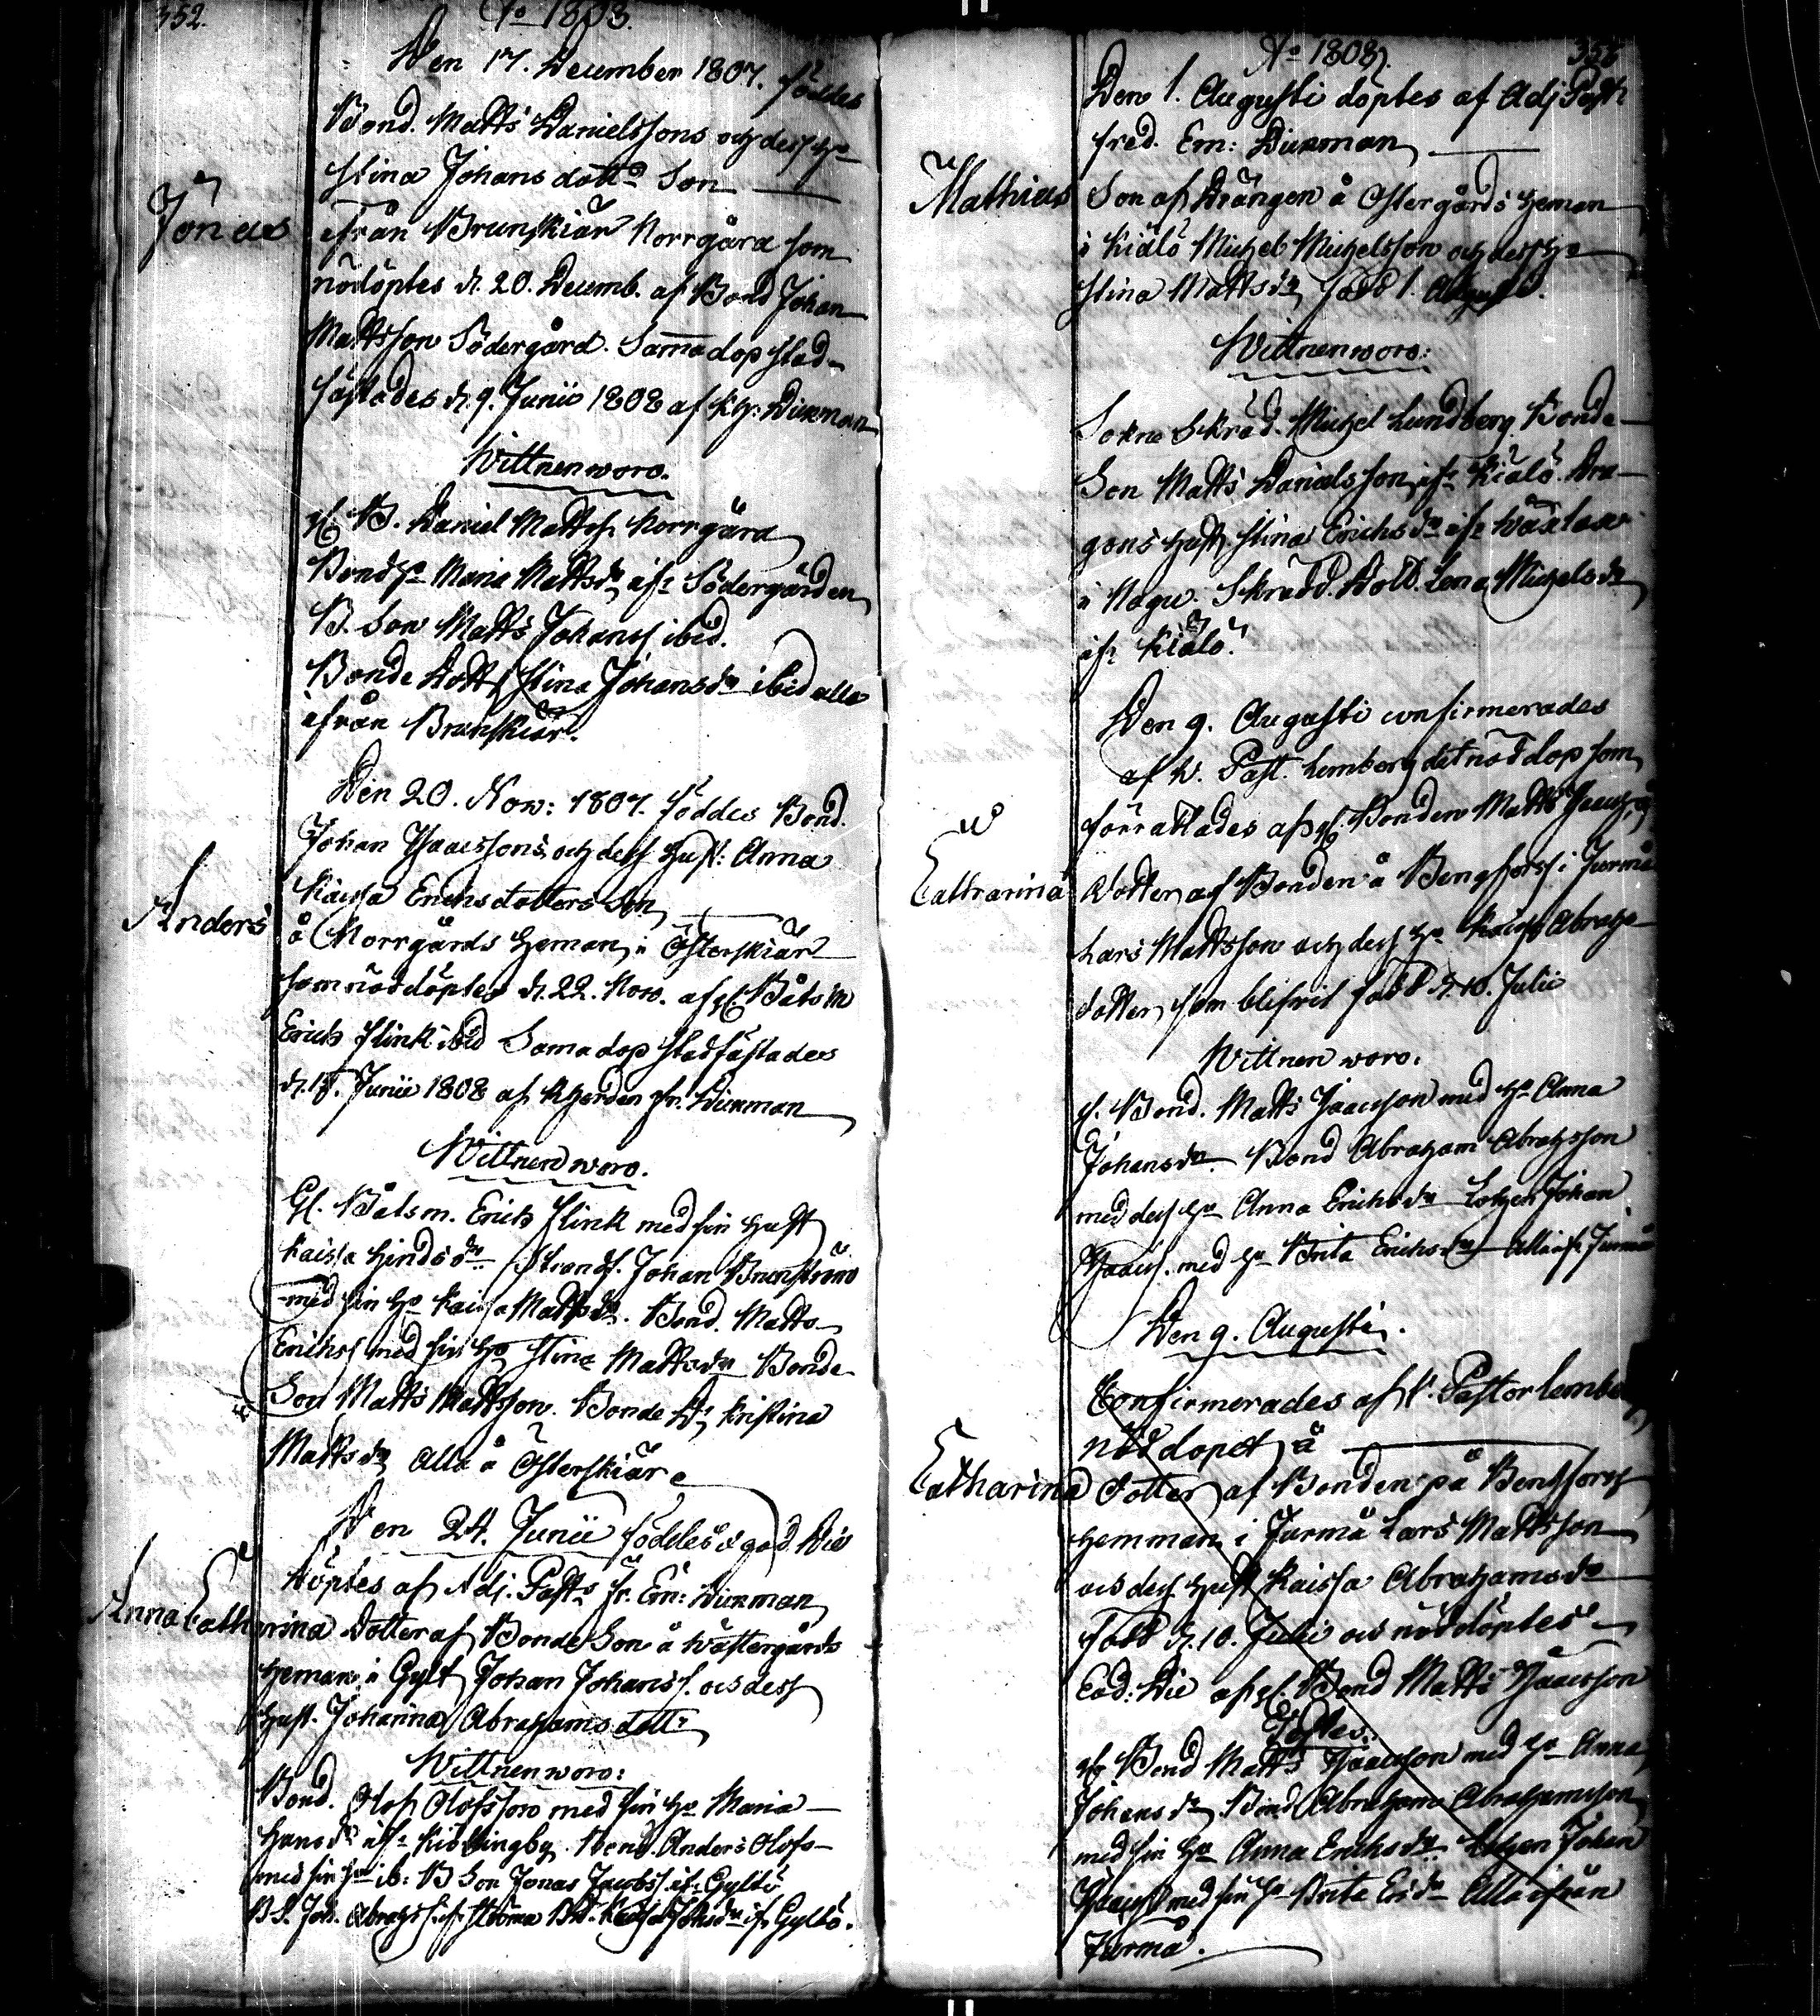 352.
Ao 1808.
Den 17. December 1807. föddes
Bond. Matts Danielssons och dess Ha
Stina Johans dottrs Son
Jonas
ifrån Brunskiär Norrgård som
nöddöptes d. 20. Decemb. af Bond Johan
Mattsson Södergård. Samma dop stad-
fästades d. 9. Junii 1808 af Kh: Dickman
Wittnen woro.
gl. B. Daniel Mattss. Norrgård
Bondha Maria Mattsdr ifr Södergården
B. Son Matts Johanss. ibid.
Bonde Dott. Stina Johansdr ibid alla
ifrån Brunskiär.
Den 20. Nov: 1807. föddes Bond.
Johan Isaacssons och dess Hust: Anna
Kaissa Erichsdotters Son
Anders
å Norrgårds Heman i Österskiär
som nöddöptes d. 22. Nov. af gl. Båtsm
Erich Flink ibid Sama dop stadfästades
d. 17. Junii 1808 af Kherden Fr. Dickman
Wittnen woro.
Gl. Båtsm. Erich Flink med sin Hust
Kaissa Hindsdr. Johan Brunström
med sin Ha Kaisa Mattsdr. Bond. Matts
Erichss med sin Ha Stina Mattsdr Bonde
Son Matts Mattsson. Bonde Dr Kristina
Mattsdr Alla å Österskiär
Den 24. Junii föddes o god. Die
döptes af Adj. Pastr Fr. Em: Dickman
Anna Catharina Dotter af Bonde Son å Wästergårds
Heman i Gylt Johan Johanss. ock dess
Hust. Johanna Abrahams dottr
Wittnen woro:
Bond. Olof Olofsson med sin Ha Maria
Hansdr ifr Kiöttingby. Bond. Anders Olofs-
med sin Ha ib: B Son Jonas Jacobss. ifr Gyltö
B S. Joh. Abrahss. ifr Stöma Bd. Kaisa Johsdr if Gyltö.
Ao 1808.
353
Den 1. Augusti döptes af Adj Pastr
Fred. Em: Dickman
Mathias
Son af Drängen å Östergårds Heman
i Kiälö Michel Michelsson och dess Ha
Stina Mattsdr född 1. Augusti.
Wittnen woro:
Sokne Skräd. Michel Lundberg. Bonde
Son Matts Danielsson ifr Kiälö. Dra-
gons Hust. Stina Erichsdr ifr
i Nagu. Skrädd. Dott. Lena Michelsdr
ifr Kiälö.
Den 9. Augusti confirmerades
af V. Past. Lemberg det nöddop som
förrättades af gl. Bonden Matts Isacss, å
Cathrarina
dotter af Bonden å Bengtsfors i Jurmå
Lars Mattsson och dess Ha Kaisa Abraha-
dotter, som blifvit född d. 10. Julii
Wittnen woro:
gl. Bond. Matts Isaacsson med Ha Anna
Johansdr. Bond Abraham Abrahsson
med dess Ha Anna Erichsdr Lotzen Johan
Isaacs. med Ha Brita Erichsdr Alla ifr Jurmå
Den 9. Augusti.
Confirmerades af V. Pastor Lemberg
nöddopet å
Catharina
dotter af Bonden på Bentsfors
Hemman i Jurmå Lars Mattsson
ock dess Hust Kaissa Abrahamsdr
född d. 10. Julii ock nöddöptes
Eod: Die af gl. Bond Matts Isaacsson
Testes:
gl Bond Matts Isaacsson med Ha Anna
Johansdr Bond Abraham Abrahamsson
med sin Ha Anna Erichsdr Lotzen Johan
Isaacss med sin Ha Brita Erisdr Alla ifrån
Jurmå.